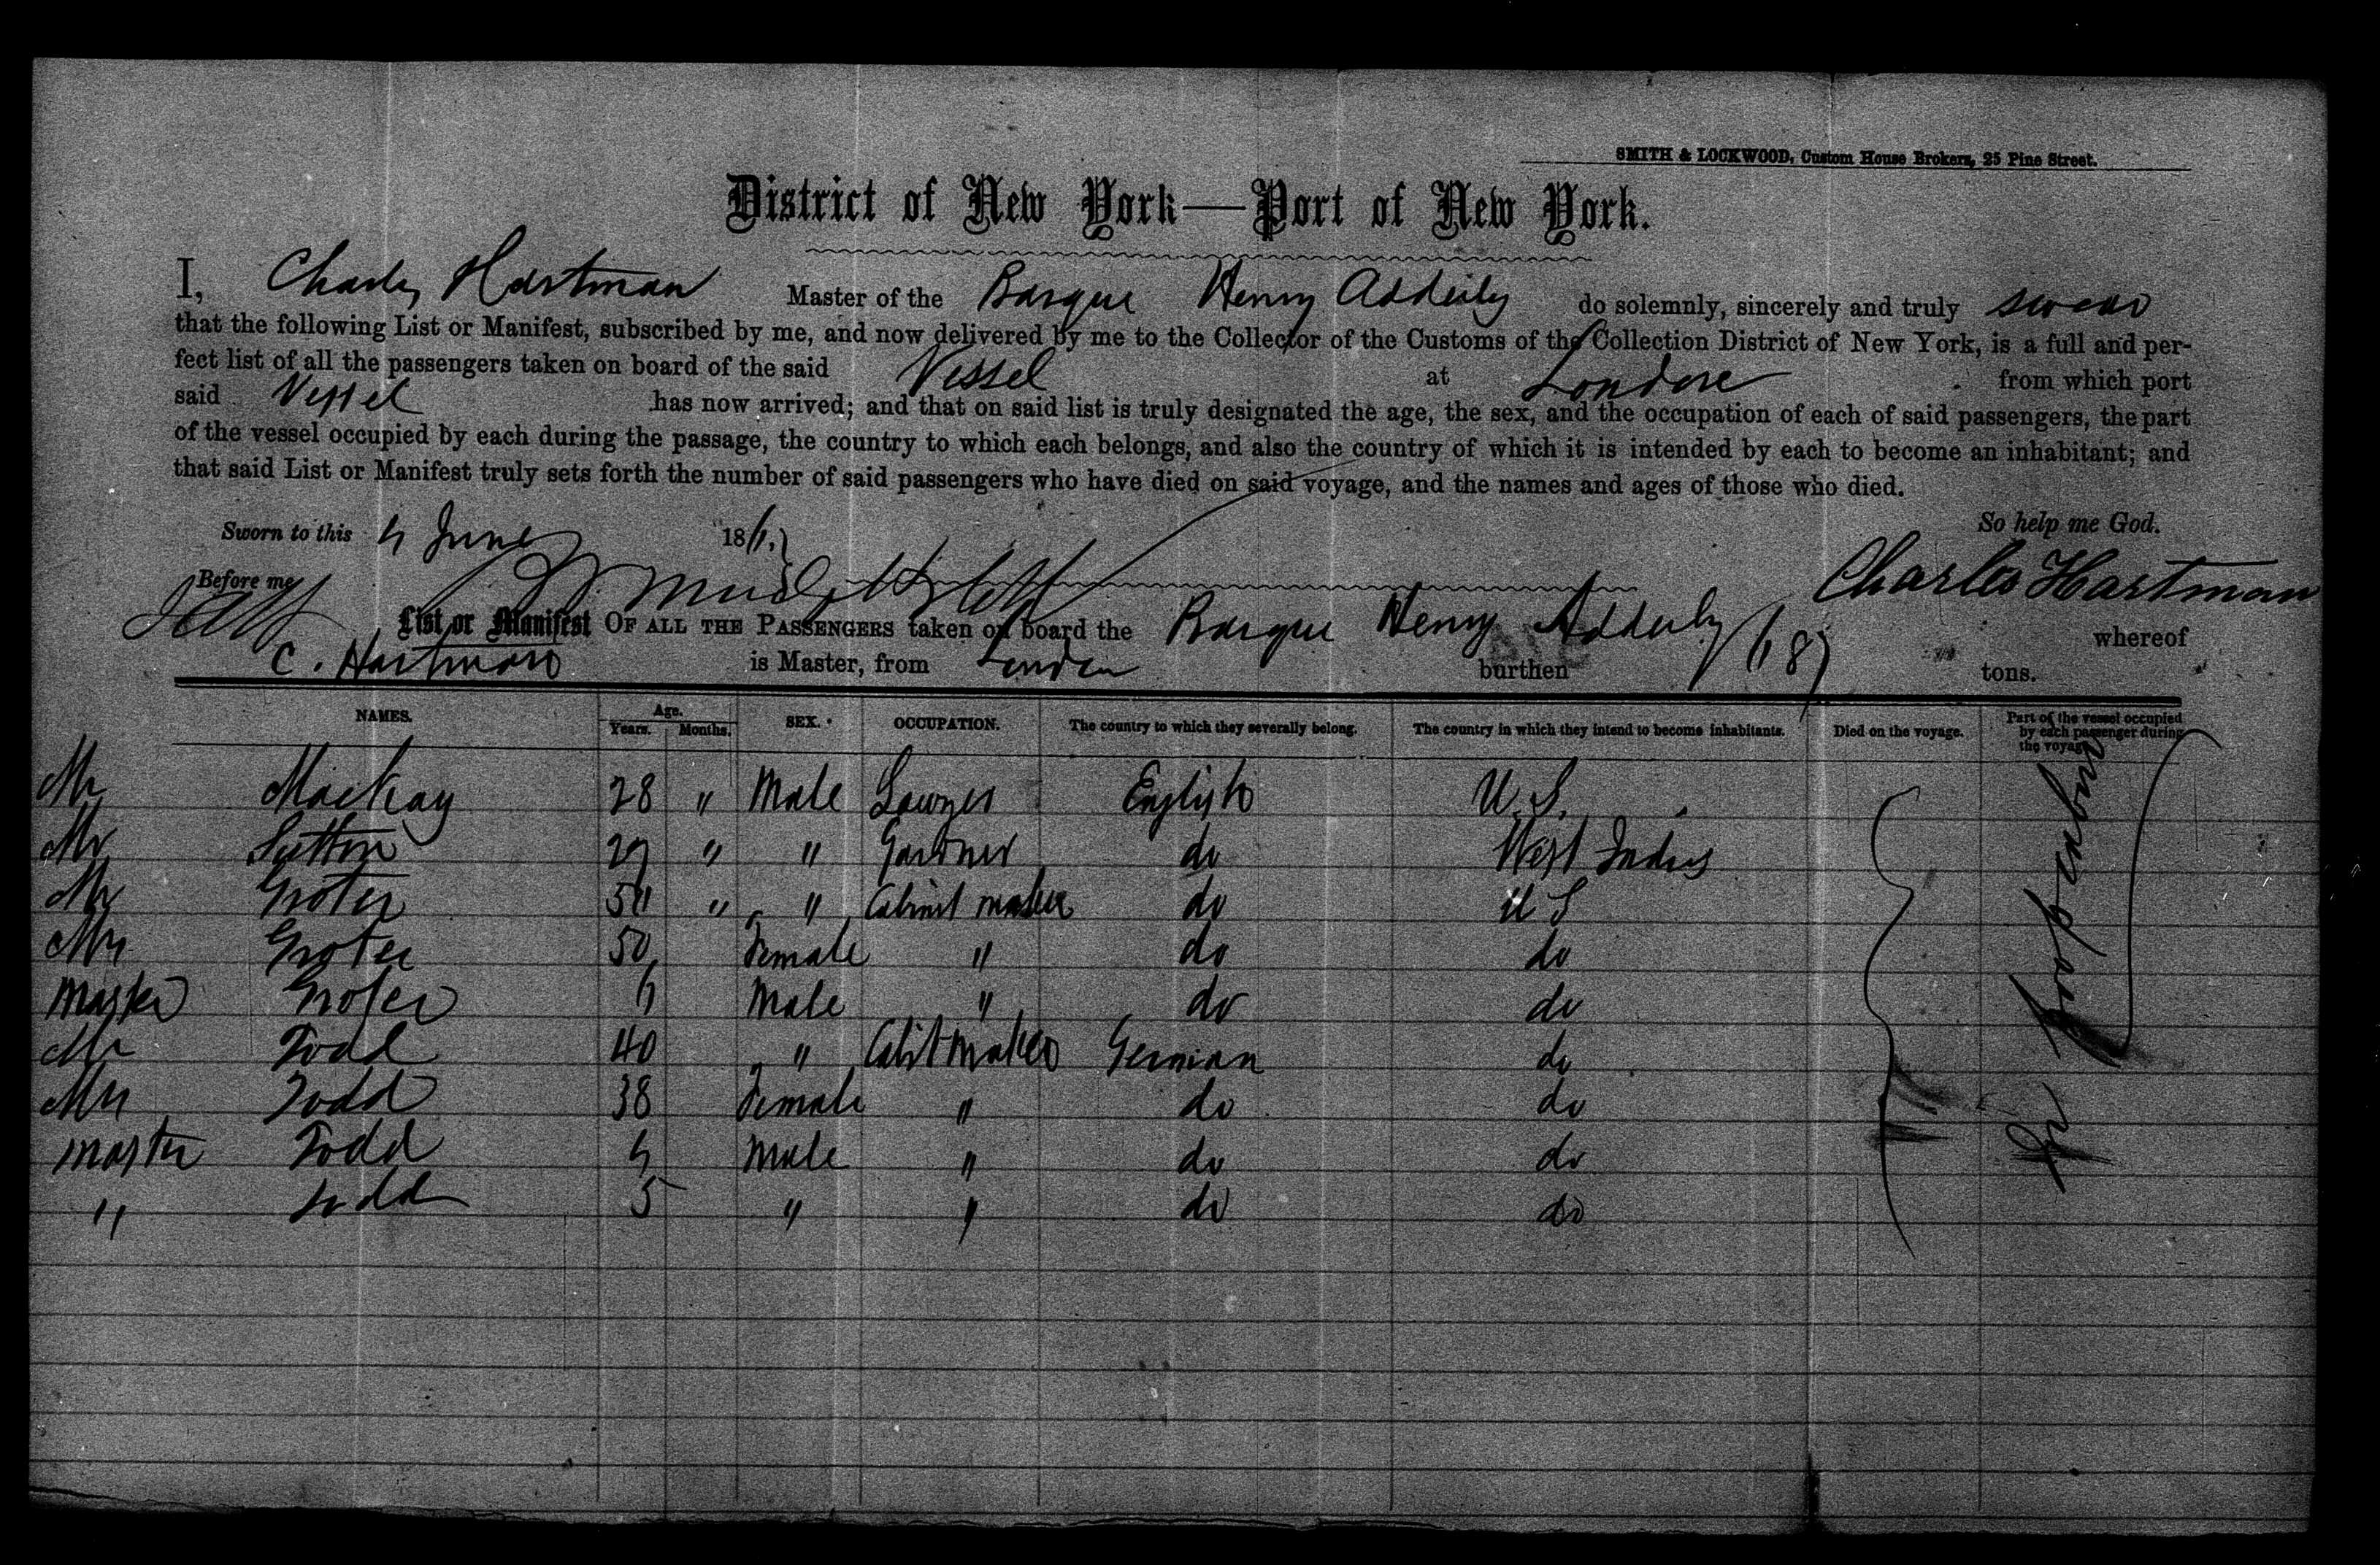 SMITH & LOCKWOOD, Custom House Brokers, 25 Pine Street.
District of New York—Port of New York.
I, Charles Hartman Master of the Barque Henry Adderly do solemnly, sincerely and truly swear
that the following List or Manifest, subscribed by me, and now delivered by me to the Collector of the Customs of the Collection District of New York, is a full and per-
fect list of all the passengers taken on board of the said Vessel at London from which port
said Vessel has now arrived; and that on said list is truly designated the age, the sex, and the occupation of each of said passengers, the part
of the vessel occupied by each during the passage, the country to which each belongs, and also the country of which it is intended by each to become an inhabitant; and
that said List or Manifest truly sets forth the number of said passengers who have died on said voyage, and the names and ages of those who died.
Sworn to this June 18 So help me God.
Before me Charles Hartman
List or Manifest OF ALL THE PASSENGERS taken on board the Barque Henry Adderly whereof
C. Hartman is Master, from London burthen tons.
NAMES. Age. Years. Months. SEX. OCCUPATION. The country to which they severally belong. The country in which they intend to become inhabitants. Died on the voyage. Part of the vessel occupied by each passenger during the voyage
Mr Mackay 28 " Male Lawyer English U.S.
Mr Sutton " " Gardner do West Indies
Mr Groter " " Cabinet maker do U S
Mrs Groter 50 Female " do do
Master Groter Male " do do
Mr Todd 40 " Cabit Maker German do
Mrs Todd 38 Female " do do
Master Todd Male " do do
" Todd 5 " " do do